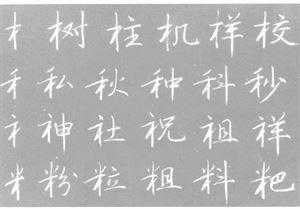 木 树 柱 机 样 校
禾 私 秋 种 科 秒
礻 神 社 祝 祖 祥
米 粉 粒 粗 料 粑